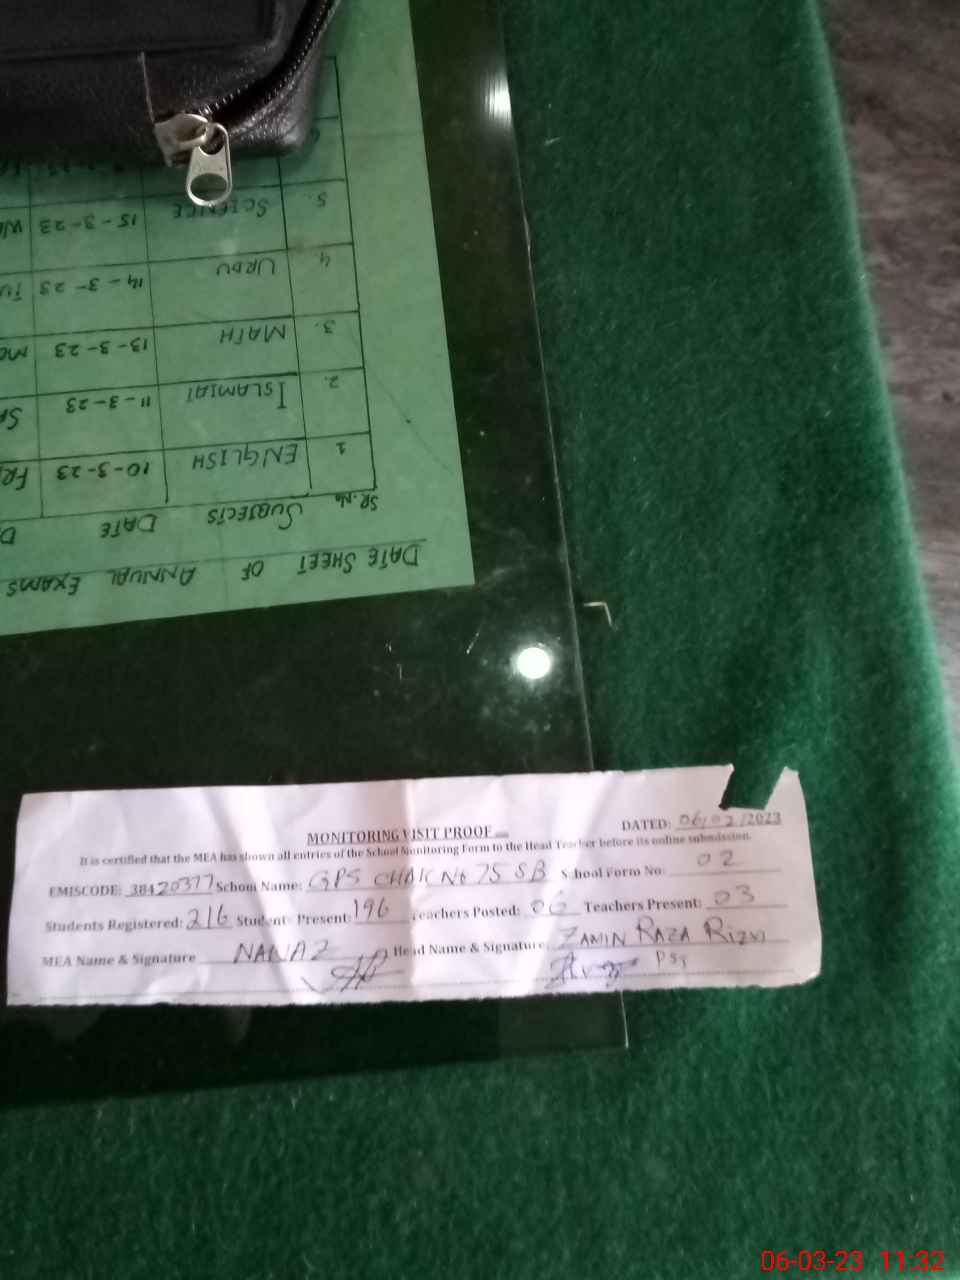 DATE SHEET OF ANNUAL EXAMS
SR.No SUBJECTS DATE D
1 ENGLISH 10-3-23 FR
2. ISLAMIAT 11-3-23 SA
3. MATH 13-3-23 MO
4 URDU 14-3-23 TU
5. SCIENCE 15-3-23 W
MONITORING VISIT PROOF DATED: 06/03/2023
It is certified that the MEA has shown all entries of the School Monitoring Form to the Head Teacher before its online submission.
EMISCODE: 38420377 School Name: GPS CHAK No 75 SB School Form No: 02
Students Registered: 216 Students Present: 196 Teachers Posted: 06 Teachers Present: 03
MEA Name & Signature NANAZ Head Name & Signature ZAMIN RAZA RIZVI
PST
06-03-23 11:32